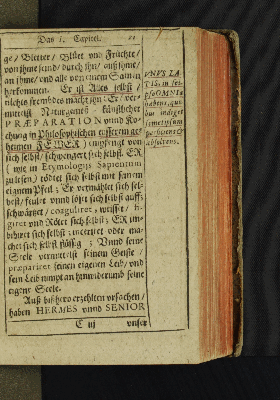 Das 1. Capitel. 21
ge / Bletter / Blüet vnd Früchte /
von jhme seind / durch jhn / auß jhme /
an jhme / vnd alle von einem Samen
herkommen. Er ist Alles selbst /
nichts frembdes macht jhn: Er
Naturgemeß Künstlicher
PRÆPARATION vnnd Ko-
chung in Philosophischen eusserem ge-
heimen FEWER) empfengt von
sich selbst / schwengert sich selbst. ER
(wie in Etymologijs Sapientum
zulesen) tödtet sich selbst mit seinem
eignem Pfeil; Er vermählet sich sel-
best / feulet vnnd löset sich selbst auff;
schwärtzet / coaguliret, weisset /
giret vnd Rötet sich selbst; ER
sich selbst: incerirt oder ma-
chet sich selbst flüssig; Vnnd seine
Seele vermittelst seinem Geiste /
præpariret seinen eigenen Leib / vnd
sein Leib nimpt an hinwiderumb seine
eigene Seele.
Auß bißhero erzehlten vrsachen /
haben HERMES vnnd SENIOR
C iij vnser
VNVS LA
PIS, in sei-
pso OMNIA
habens, qui-
bus indiget
semetipsum
perficiens &
absolvens.